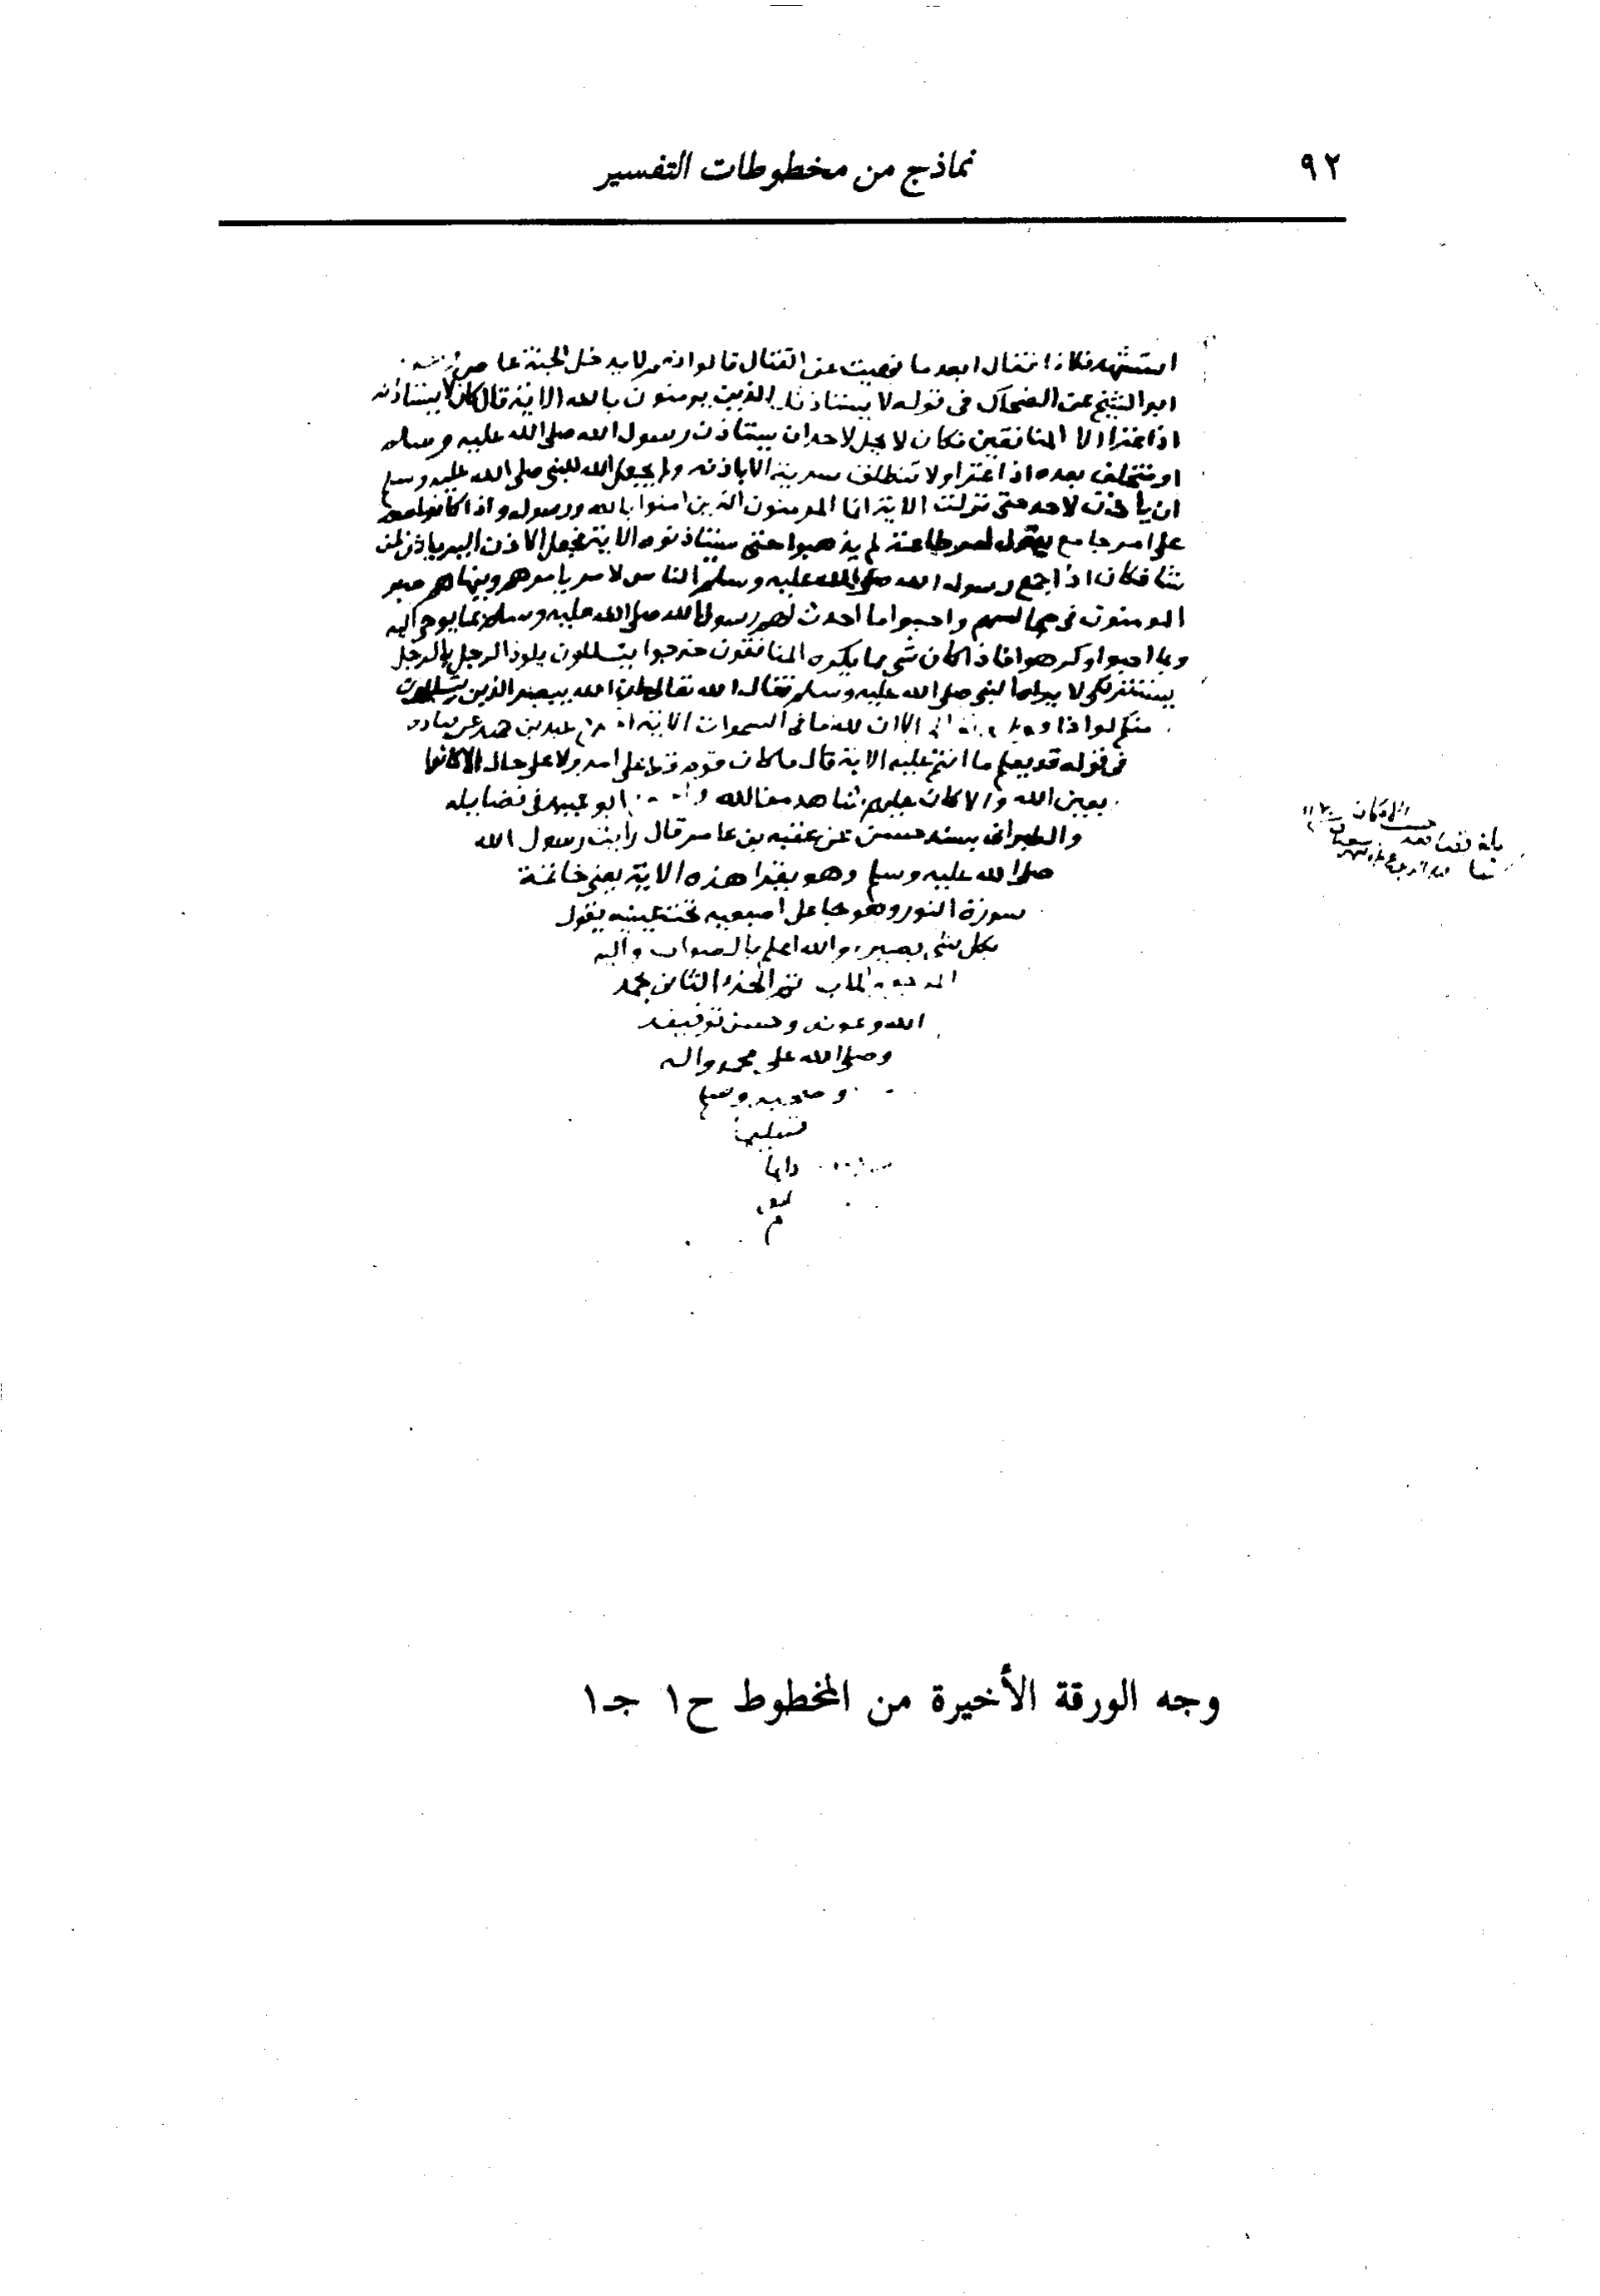 ٩٢
نماذج من مخطوطات التفسير
استشهد فكان اقتال ابعد ما نهيت عن القتال قالوا لا يدخل الجنة عاص
ابو الشيخ عن الضحاك في قوله لا يستاذنك الذين يومنون بالله الاية قال كان لا يستاذنه
اذا غزا الا المنافقين فكان لا يحل لاحد ان يستاذن رسول الله صلى الله عليه وسلم
او يتخلف بعده اذا غزا ولا تنطلق سرية الا باذنه ولم يجعل الله للنبي صلى الله عليه وسلم
ان ياذن لاحد حتى نزلت الاية انما المومنون الذين امنوا بالله ورسوله واذا كانوا معه
على امر جامع يقول امر طاعة لم يذهبوا حتى يستاذنوه الاية فجعل الاذن اليه ياذن لمن
شا فكان اذا جمع رسول الله صلى الله عليه وسلم الناس لامر يامرهم وينهاهم صبر
المومنون في مجالسهم واحبوا ما احدث لهم رسول الله صلى الله عليه وسلم بما يوحى اليه
وبما احبوا وكرهوا فاذا كان شي مما يكره المنافقون خرجوا يتسللون يلوذ الرجل بالرجل
يستتر لكي لا يراه النبي صلى الله عليه وسلم فقال الله تعالى ان الله يبصر الذين يتسللون
منكم لواذا الا ان لله ما في السموات الاية عبد بن حميد عن
في قوله قد يعلم ما انتم عليه الاية قال ما كان قوم قط على امر ولا على حال الا كانوا
بعين الله والا كان عليهم شاهد من الله ابو عبيد في فضايله
والطبراني بسند حسن عن عقبه بن عامر قال رايت رسول الله
صلى الله عليه وسلم وهو يقرا هذه الاية يعني خاتمة
سورة النور وهو جاعل اصبعيه تحت عينيه يقول
بكل شي بصير والله اعلم بالصواب واليه
المرجع والماب تم الجزء الثاني بحمد
الله وعونه وحسن توفيقه
وصلى الله على محمد واله
وصحبه وسلم
تسليما
دايما
وجه الورقة الأخيرة من المخطوط ح١ جـ١